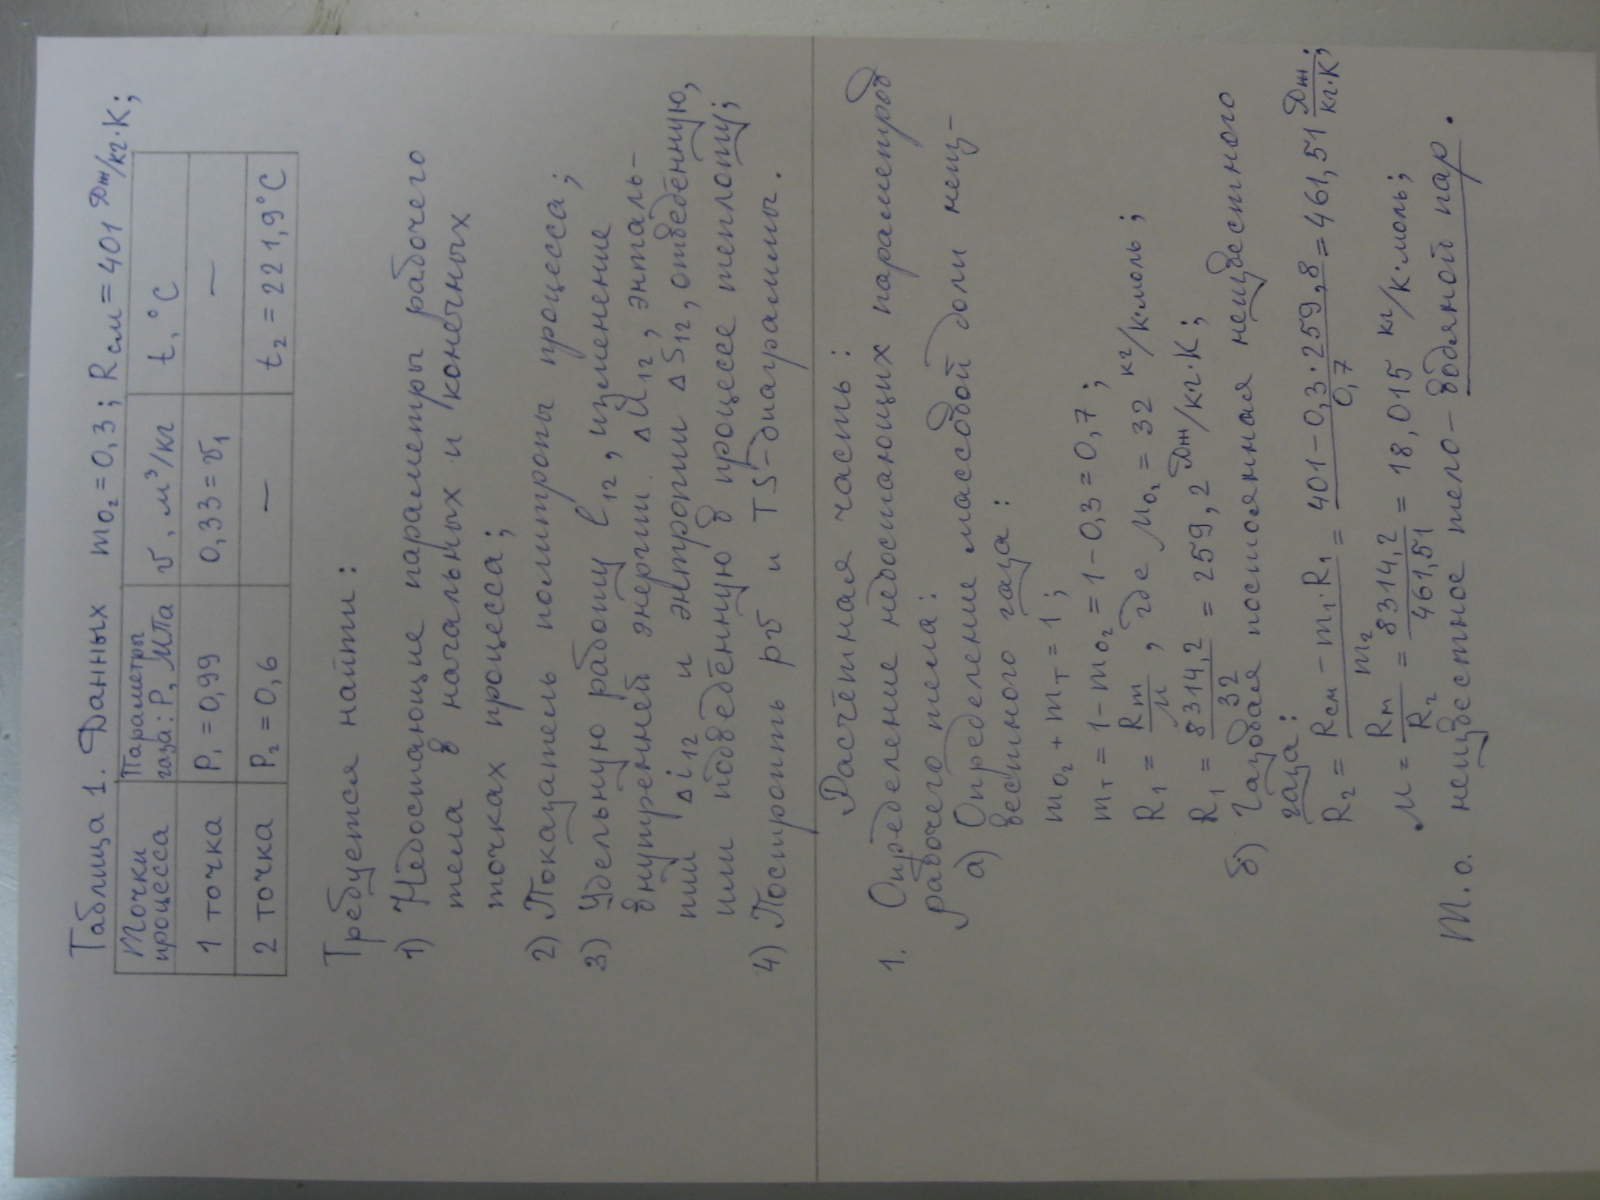 Таблица 1. Данных mO₂ = 0,3; Rсм = 401 Дж/кг·К;
Точки процесса | Параметры газа: P, МПа | v, м³/кг | t, °C
1 точка | P₁ = 0,99 | 0,33 = v₁ | —
2 точка | P₂ = 0,6 | — | t₂ = 221,9°C
Требуется найти:
1) Недостающие параметры рабочего
тела в начальных и конечных
точках процесса;
2) Показатель политропы процесса;
3) Удельную работу l₁₂, изменение
внутренней энергии ΔU₁₂, энталь-
пии Δi₁₂ и энтропии ΔS₁₂, отведённую,
или подведённую в процессе теплоту;
4) Построить pv и TS-диаграммы.
Расчётная часть:
1. Определение недостающих параметров
рабочего тела:
а) Определение массовой доли неиз-
вестного газа:
mO₂ + mт = 1;
mт = 1 - mO₂ = 1 - 0,3 = 0,7;
R₁ = Rm/μ, где μO₂ = 32 кг/к·моль;
R₁ = 8314,2/32 = 259,2 Дж/кг·К;
б) Газовая постоянная неизвестного
газа:
R₂ = (Rсм - m₁·R₁)/m₂ = (401 - 0,3·259,8)/0,7 = 461,51 Дж/кг·К;
μ = Rm/R₂ = 8314,2/461,51 = 18,015 кг/к·моль;
Т.о. неизвестное тело - водяной пар.